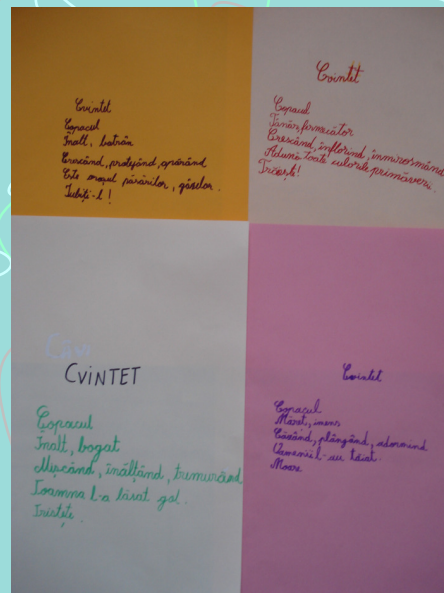 Cvintet
Copacul
Înalt, batrân
Crescând, protejând, apărând
Este orașul păsărilor, gâzelor.
Iubiți-l!
Cvintet
Copacul
Tânăr, fermecător
Crescând, înflorind, înmiresmând
Adună toate culorile primăverii.
Trăiește!
CVINTET
Copacul
Înalt, bogat
Mișcând, înălțând, tremurând
Toamna l-a lăsat gol.
Tristețe.
Cvintet
Copacul
Măreț, imens
Căzând, plângând, adormind
Oamenii l-au tăiat.
Moare